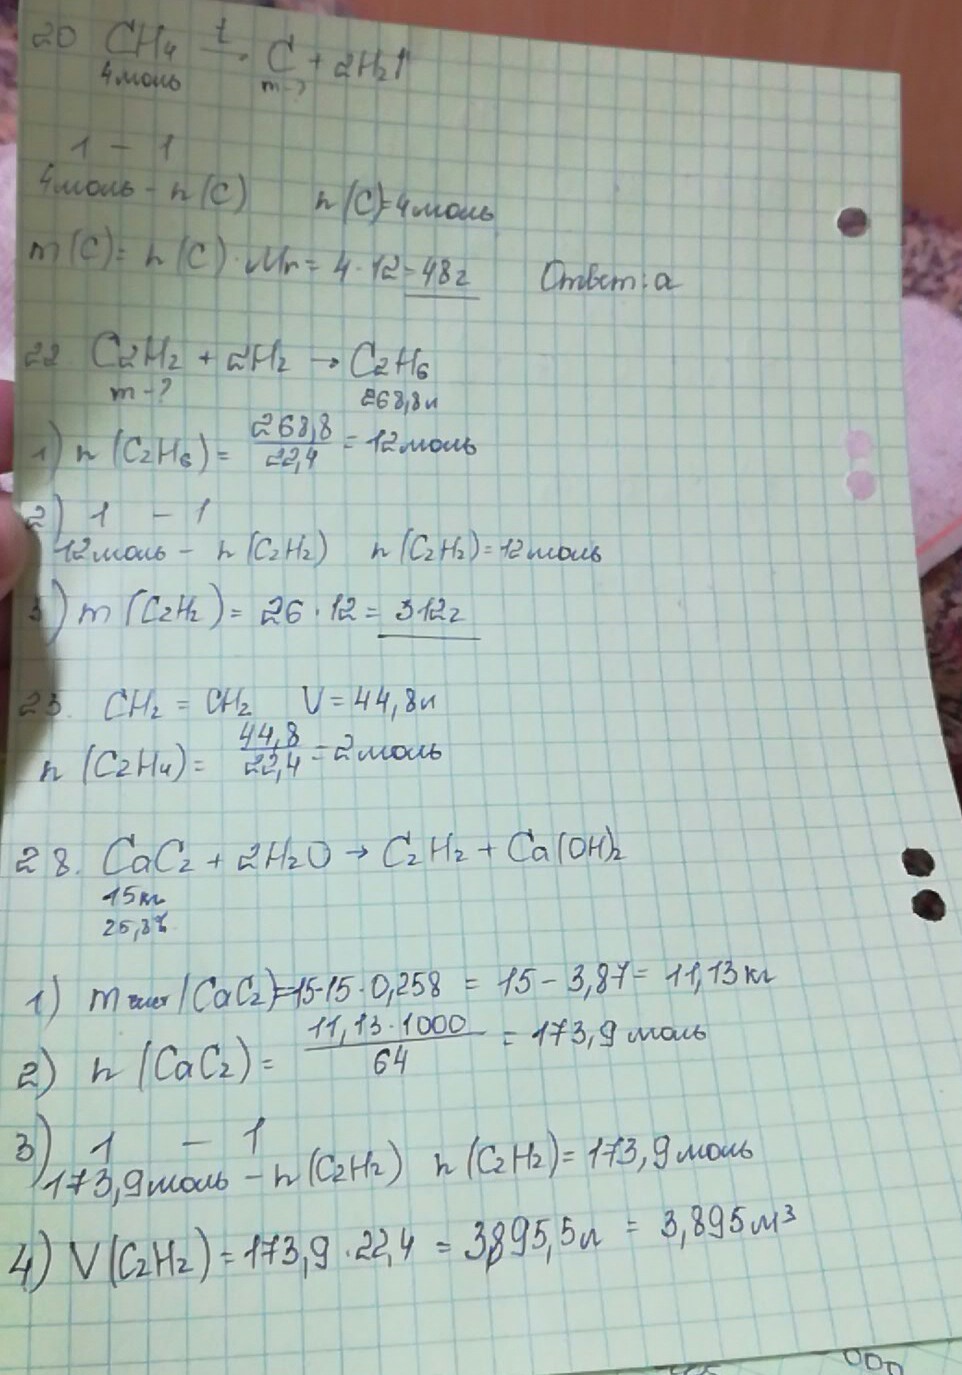 20 CH4 t→ C + 2H2↑
4моль m-?
1 – 1
4моль – n(C) n(C)=4моль
m(C)= n(C)·Mr= 4·12=48г Ответ: а
22 C2H2 + 2H2 → C2H6
m-? 268,8л
1) n(C2H6)= 268,8/22,4 = 12моль
2) 1 – 1
12моль – n(C2H2) n(C2H2)=12моль
3) m(C2H2)= 26·12= 312г
23. CH2 = CH2 V=44,8л
n(C2H4)= 44,8/22,4 =2моль
28. CaC2 + 2H2O → C2H2 + Ca(OH)2
15кг
25,8%
1) m чист(CaC2)=15-15·0,258 = 15 – 3,87= 11,13кг
2) n(CaC2)= 11,13·1000/64 = 173,9моль
3) 1 – 1
173,9моль – n(C2H2) n(C2H2)= 173,9моль
4) V(C2H2)=173,9·22,4 = 3895,5л = 3,895м³